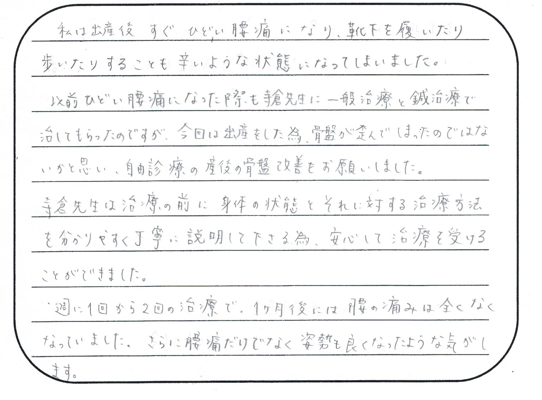 私は出産後すぐひどい腰痛になり、靴下を履いたり
歩いたりすることも辛いような状態になってしまいました。
以前ひどい腰痛になった際も寺倉先生に一般治療と鍼治療で
治してもらったのですが、今回は出産をした為、骨盤が歪んでしまったのではな
いかと思い、自由診療の産後の骨盤改善をお願いしました。
寺倉先生は治療の前に身体の状態とそれに対する治療方法
を分かりやすく丁寧に説明して下さる為、安心して治療を受ける
ことができました。
週に1回から2回の治療で、1ヶ月後には腰の痛みは全くなく
なっていました。さらに腰痛だけでなく姿勢も良くなったような気がし
ます。